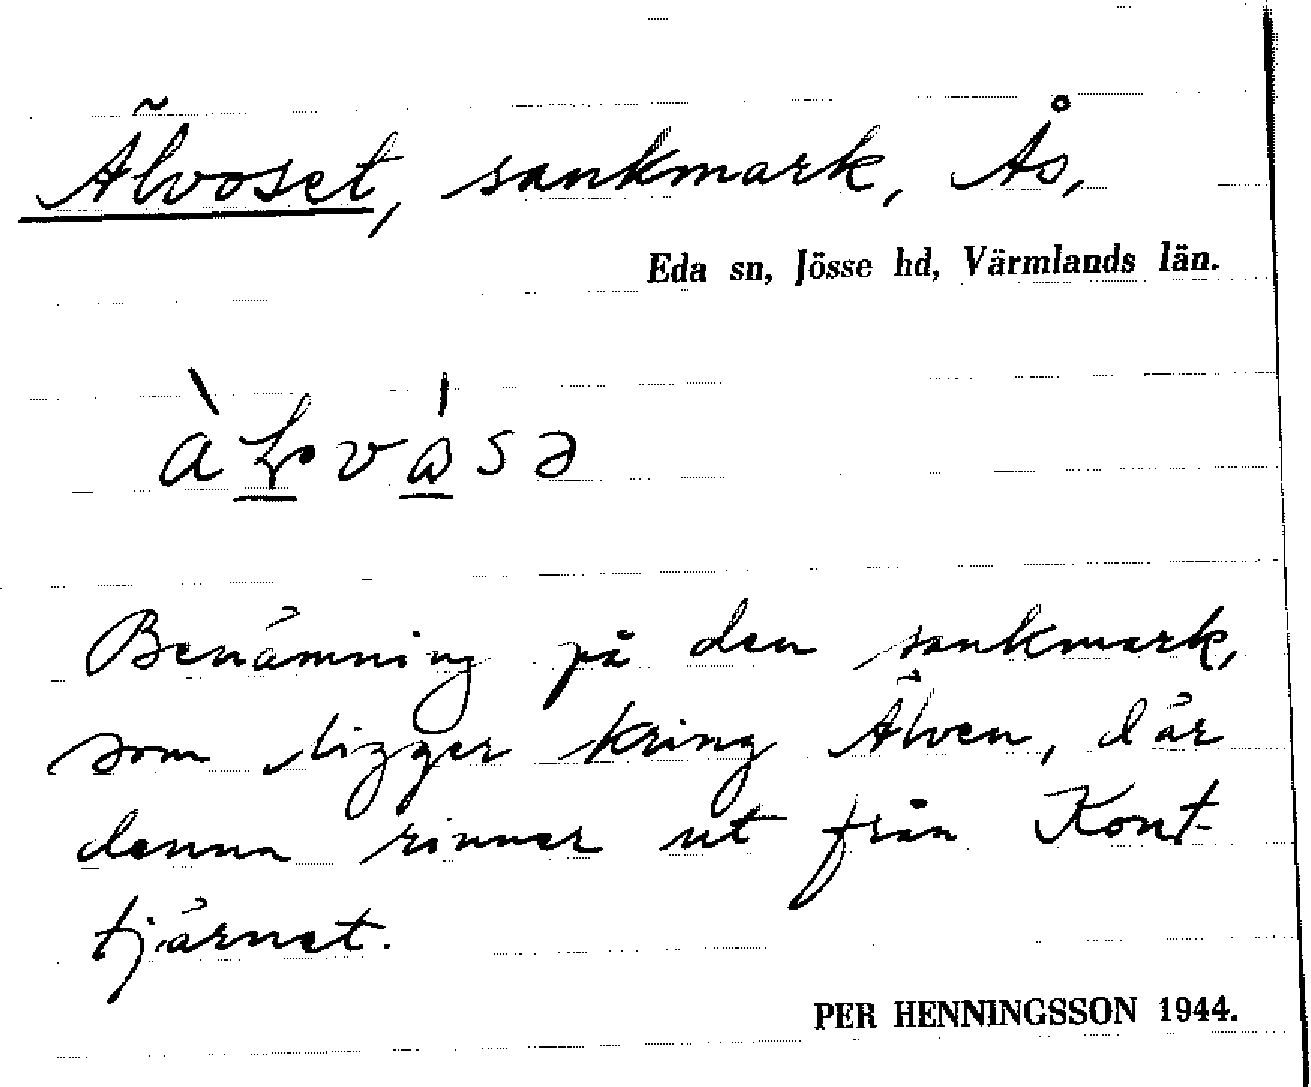 Älvoset, sankmark, Ås,
Eda sn, Jösse hd, Värmlands län.
Benämning på den sankmark,
som ligger kring Älven, där
denna rinner ut från Kont-
tjärnet.
PER HENNINGSSON 1944.